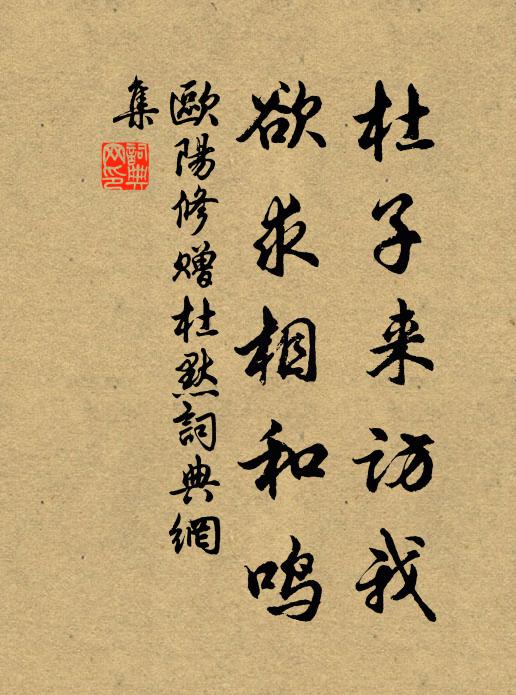 杜子来访我
欲求相和鸣
歐陽修贈杜默詞典網
集
詞典网印